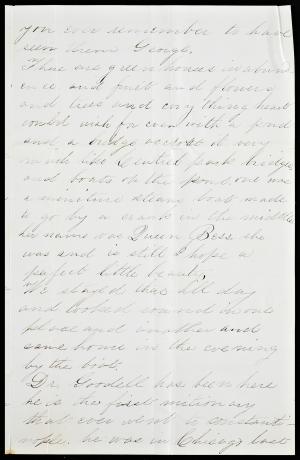 you ever remember to have
seen them George.
There are green houses in abund
ence and fruit and flowers
and trees and every thing heart
could wish for even with a pond
and a bridge across it very
much like Central park bridges
and boats on the pond, one was
a miniture steam boat made
to go by a crank in the middle
her name was Queen Bess she
was and is still I hope a
perfect little beauty
We stayed there all day
and looked around in one
place and another and
came home in the evening
by the boat.
Dr. Goodell has been here
he is the first missionary
that ever went to Constanti-
nople. he was in Chicago last